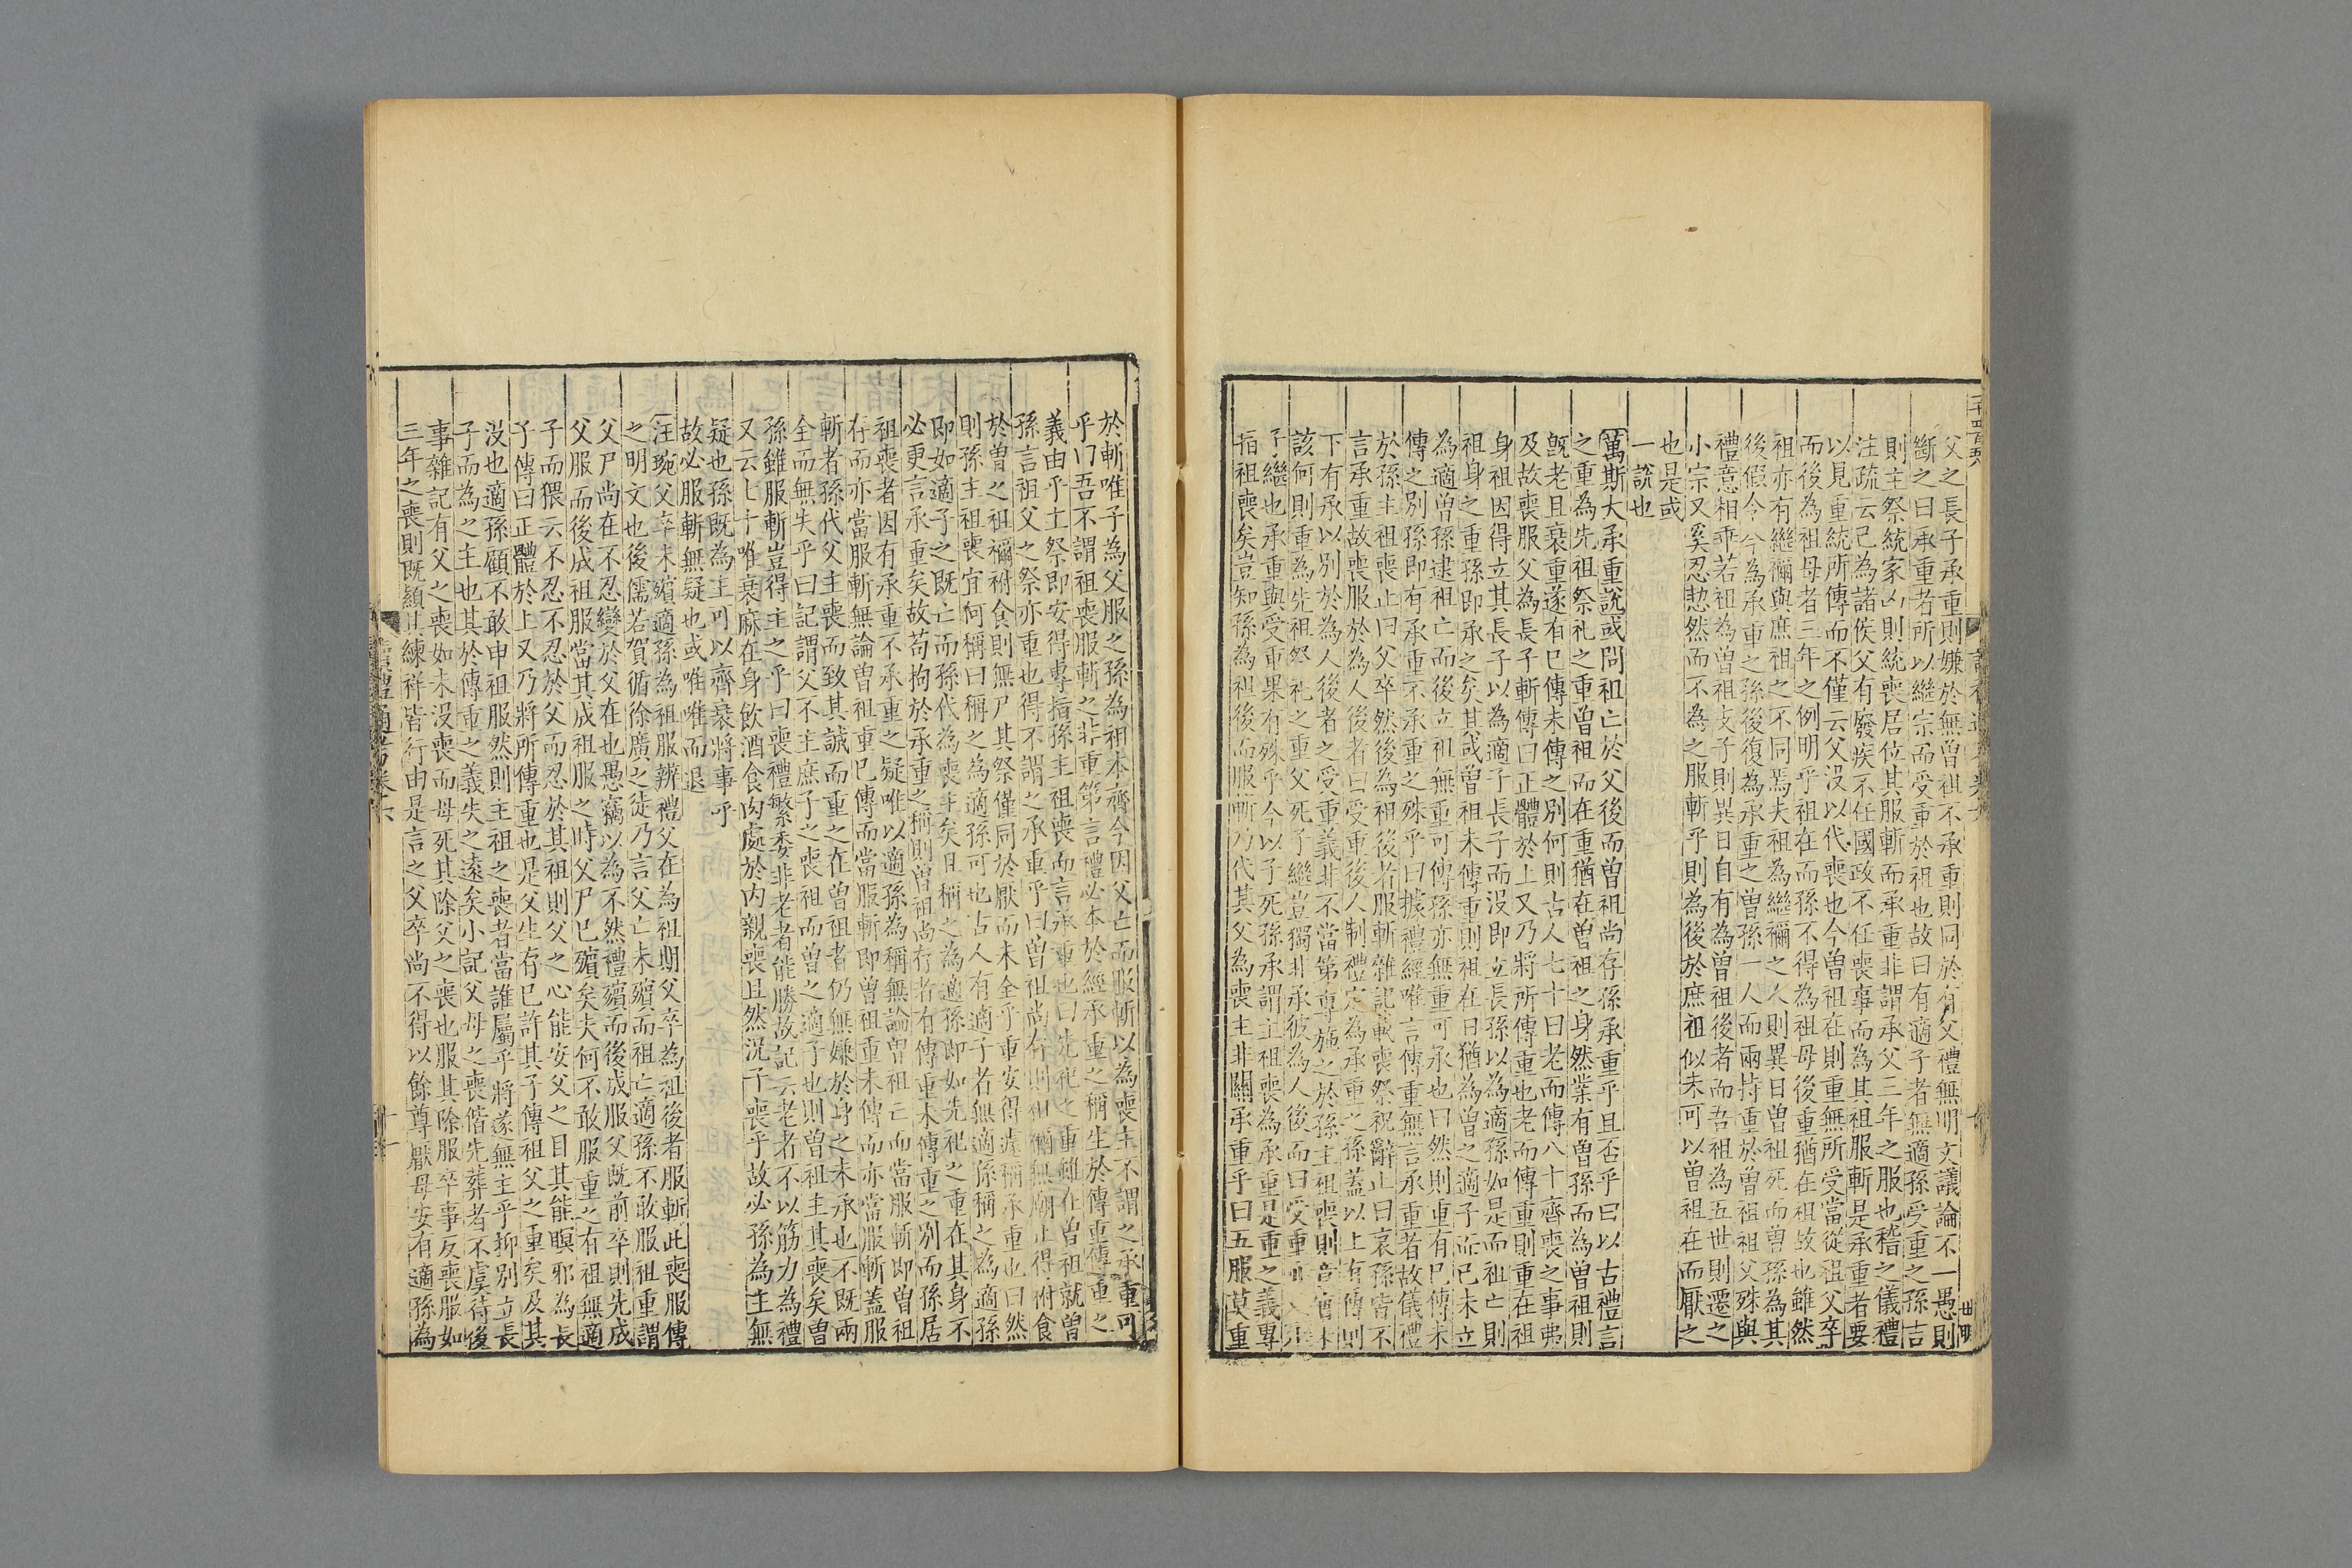 父之長子承重則嫌於無曾祖不承重則同於有父禮無明文議論不一愚則
斷之曰承重者所以繼宗而受重於祖也故曰有適子者無適孫受重之孫言
則主祭統家凶則統喪居位其服斬而承重非謂承父三年之服也稽之儀禮
注疏云己為諸侯父有廢疾不任國政不任喪事而為其祖服斬是承重者要
以見重統所傳而不僅云父沒以代喪也今曾祖在則重無所受當從祖父卒
而後為祖母者三年之例明乎祖在而孫不得為祖母後重猶在祖故也雖然
祖亦有繼禰與庶祖之不同焉夫祖為繼禰之人則異日曾祖死而曾孫為其
後假令今為承重之孫後復為承重之曾孫一人而兩持重於曾祖祖父殊與
禮意相乖若祖為曾祖支子則異日自有為曾祖後者而吾祖為五世則遷之
小宗又奚忍恝然而不為之服斬乎則為後於庶祖似未可以曾祖在而厭之
也是或
一說也
萬斯大承重說或問祖亡於父後而曾祖尚存孫承重乎且否乎曰以古禮言
之重為先祖祭礼之重曾祖而在重猶在曾祖之身然業有曾孫而為曾祖則
既老且衰重遂有已傳未傳之別何則古人七十曰老而傳八十齊喪之事弗
及故喪服父為長子斬傳曰正體於上又乃將所傳重也老而傳重則重在祖
身祖因得立其長子以為適子長子而沒即立長孫以為適孫如是而祖亡則
祖身之重孫即承之矣其或曾祖未傳重則祖在日猶為曾之適子祖已未立
為適曾孫逮祖亡而後立祖無重可傳孫亦無重可承也曰然則重有已傳未
傳之別孫即有承重不承重之殊乎曰據禮經唯言傳重無言承重者故儀禮
於孫主祖喪止曰父卒然後為祖後者服斬雜記載喪祭祝辭止曰哀孫皆不
言承重故喪服於為人後者曰受重後人制禮定為承重之孫蓋以上有傳則
下有承以別於為人後者之受重義非不當第專施之於孫主祖喪則
該何則重為先祖祭礼之重父死子繼豈獨非承彼為人後而曰受重
子繼也承重與受重果有殊乎今以子死孫承謂主祖喪為承重是重之義專
指祖喪矣豈知孫為祖後而服斬乃代其父為喪主非關承重乎曰五服莫重
於斬唯子為父服之孫為祖本齊今因父亡而服斬以為喪主不謂之承重可
乎曰吾不謂祖喪服斬之非重第言禮必本於經承重之稱生於傳重傳重之
義由乎主祭即安得專指孫主祖喪而言承重也曰先祀之重雖在曾祖就曾
孫言祖父之祭亦重也得不謂之承重乎曰曾祖尚存則祖禰無廟止得祔食
於曾之祖禰祔食則無尸其祭僅同於厭而未全乎重安得遽稱承重也曰然
則孫主祖喪宜何稱曰稱之為適孫可也古人有適子者無適孫稱之為適孫
即如適子之既亡而孫代為喪主矣曰稱之為適孫即如先祀之重在其身不
必更言承重矣故苟拘於承重之稱則曾祖尚存者有傳重未傳重之別而孫居
祖喪者因有承重不承重之疑唯以適孫為稱無論曾祖亡而當服斬即曾祖
存而亦當服斬無論曾祖重已傳而當服斬即曾祖重未傳而亦當服斬蓋服
斬者孫代父主喪而致其誠而重之在曾祖者仍無嫌於身之未承也不既兩
全而無失乎曰記謂父不主庶子之喪祖而曾之適子也則曾祖主其喪矣曾
孫雖服斬豈得主之乎曰喪禮繁委非老者能勝故記云老者不以筋力為禮
又云七十唯衰麻在身飲酒食肉處於內親喪且然況子喪乎故必孫為主無
疑也孫既為主可以齊衰將事乎
故必服斬無疑也或唯唯而退
汪琬父卒未殯適孫為祖服辨禮父在為祖期父卒為祖後者服斬此喪服傳
之明文也後儒若賀循徐廣之徒乃言父亡未殯而祖亡適孫不敢服祖重謂
父尸尚在不忍變於父在也愚竊以為不然禮殯而後成服父既前卒則先成
父服而後成祖服當其成祖服之時父尸已殯矣夫何不敢服重之有祖無適
子而猥云不忍不忍於父而忍於其祖則父之心能安父之目其能瞑邪為長
子傳曰正體於上又乃將所傳重也是父生有已許其子傳祖父之重矣及其
沒也適孫顧不敢申祖服然則主祖之喪者當誰屬乎將遂無主乎抑別立長
子而為之主也其於傳重之義失之遠矣小記父母之喪偕先葬者不虞待後
事雜記有父之喪如未沒喪而母死其除父之喪也服其除服卒事反喪服如
三年之喪則既顈其練祥皆行由是言之父卒尚不得以餘尊厭母安有適孫為